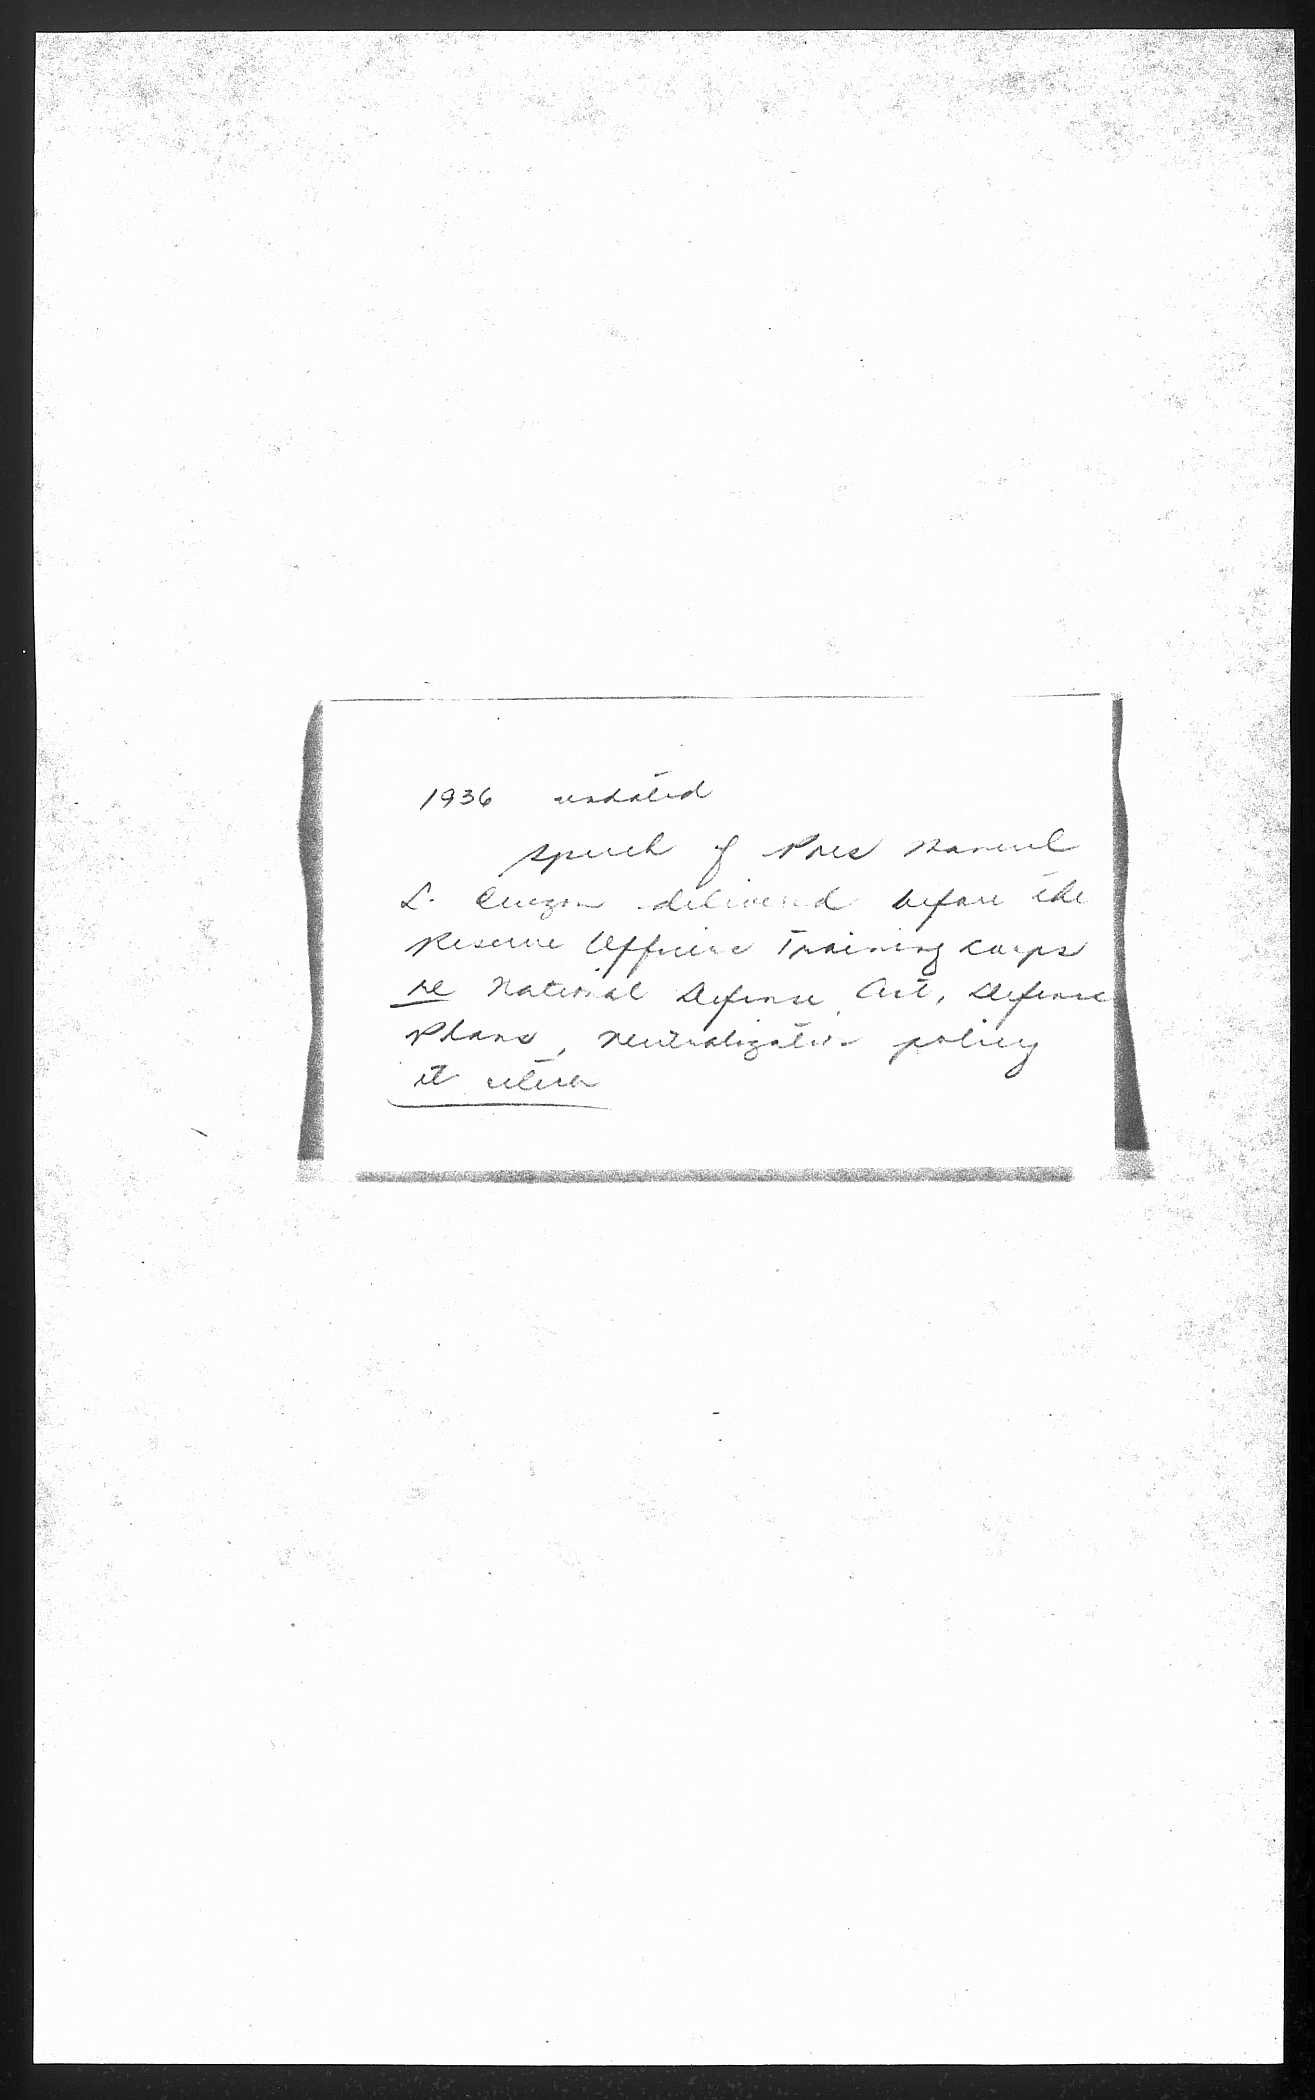 1936 undated
Speech of Pres Manuel
L. Quezon delivered before the
Reserve Officers Training Corps
re National Defense Act, Defense
Plans, neutralization policy
et cetera